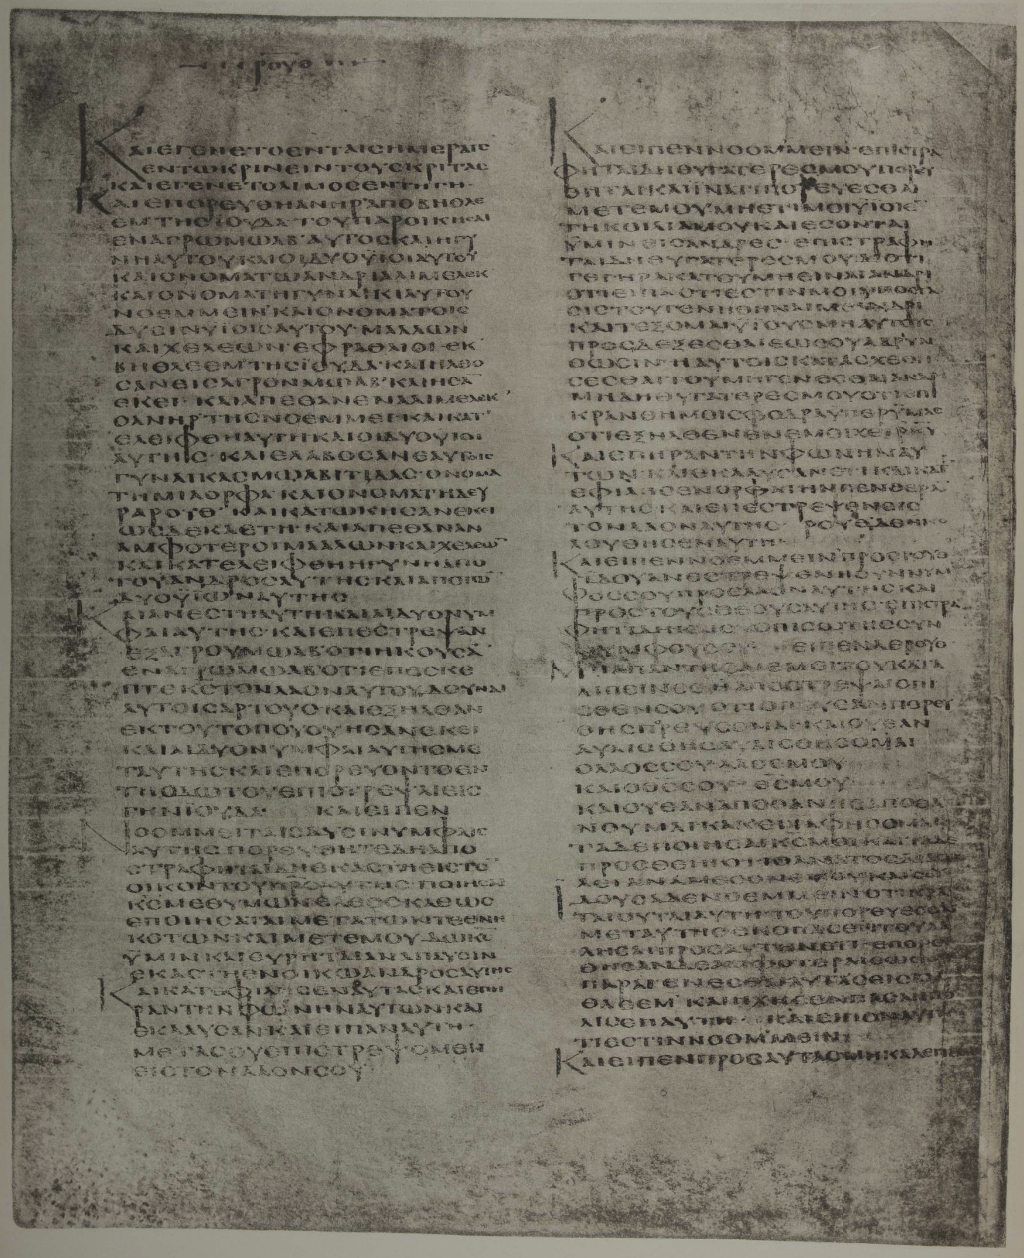 ΡΟΥΘ
ΚΑΙΕΓΕΝΕΤΟΕΝΤΑΙϹΗΜΕΡΑΙϹ
ΕΝΤΩΚΡΙΝΕΙΝΤΟΥϹΚΡΙΤΑϹ
ΚΑΙΕΓΕΝΕΤΟΛΙΜΟϹΕΝΤΗΓΗ·
ΚΑΙΕΠΟΡΕΥΘΗΑΝΗΡΑΠΟΒΗΘΛΕ
ΕΜΤΗϹΙΟΥΔΑ·ΤΟΥΠΑΡΟΙΚΗϹΑΙ
ΕΝΑΓΡΩΜΩΑΒ·ΑΥΤΟϹΚΑΙΗΓΥ
ΝΗΑΥΤΟΥΚΑΙΟΙΔΥΟΥΙΟΙΑΥΤΟΥ
ΚΑΙΟΝΟΜΑΤΩΑΝΔΡΙΑΛΙΜΕΛΕΚ
ΚΑΙΟΝΟΜΑΤΗΓΥΝΑΙΚΙΑΥΤΟΥ
ΝΟΕΜΜΕΙΝ·ΚΑΙΟΝΟΜΑΤΟΙϹ
ΔΥϹΙΝΥΙΟΙϹΑΥΤΟΥ·ΜΑΑΛΩΝ
ΚΑΙΧΕΛΕΩΝ·ΕΦΡΑΘΑΙΟΙ·ΕΚ
ΒΗΘΛΕΕΜΤΗϹΙΟΥΔΑ·ΚΑΙΗΛΘΟ
ϹΑΝΕΙϹΑΓΡΟΝΜΩΑΒ·ΚΑΙΗϹΑ
ΕΚΕΙ· ΚΑΙΑΠΕΘΑΝΕΝΑΛΙΜΕΛΕΚ
ΟΑΝΗΡΤΗϹΝΟΕΜΜΕΙ·ΚΑΙΚΑΤ
ΕΛΕΙΦΘΗΑΥΤΗΚΑΙΟΙΔΥΟΥΙΟΙ
ΑΥΤΗϹ· ΚΑΙΕΛΑΒΟϹΑΝΕΑΥΤΟΙϹ
ΓΥΝΑΙΚΑϹΜΩΑΒΙΤΙΔΑϹ·ΟΝΟΜΑ
ΤΗΜΙΑΟΡΦΑ·ΚΑΙΟΝΟΜΑΤΗΔΕΥ
ΡΑΡΟΥΘ· ΚΑΙΚΑΤΩΚΗϹΑΝΕΚΕΙ
ΩϹΔΕΚΑΕΤΗ· ΚΑΙΑΠΕΘΑΝΑΝ
ΑΜΦΟΤΕΡΟΙΜΑΑΛΩΝΚΑΙΧΕΛΕΩ
ΚΑΙΚΑΤΕΛΕΙΦΘΗΗΓΥΝΗΑΠΟ
ΤΟΥΑΝΔΡΟϹΑΥΤΗϹΚΑΙΑΠΟΤΩ
ΔΥΟΥΙΩΝΑΥΤΗϹ
ΚΑΙΑΝΕϹΤΗΑΥΤΗΚΑΙΑΙΔΥΟΝΥΜ
ΦΑΙΑΥΤΗϹ·ΚΑΙΕΠΕϹΤΡΕΨΑΝ
ΕΞΑΓΡΟΥΜΩΑΒ·ΟΤΙΗΚΟΥϹΑ
ΕΝΑΓΡΩΜΩΑΒΟΤΙΕΠΕϹΚΕ
ΠΤΕΚϹΤΟΝΛΑΟΝΑΥΤΟΥΔΟΥΝΑΙ
ΑΥΤΟΙϹΑΡΤΟΥϹ·ΚΑΙΕΞΗΛΘΑΝ
ΕΚΤΟΥΤΟΠΟΥΟΥΗϹΑΝΕΚΕΙ
ΚΑΙΑΙΔΥΟΝΥΜΦΑΙΑΥΤΗϹΜΕ
ΤΑΥΤΗϹΚΑΙΕΠΟΡΕΥΟΝΤΟΕΝ
ΤΗΟΔΩΤΟΥΕΠΙϹΤΡΕΨΑΙΕΙϹ
ΓΗΝΙΟΥΔΑ· ΚΑΙΕΙΠΕΝ
ΝΟΟΜΜΕΙΤΑΙϹΔΥϹΙΝΥΜΦΑΙϹ
ΑΥΤΗϹΠΟΡΕΥΘΗΤΕΔΗΑΠΟ
ϹΤΡΑΦΗΤΑΙΔΗΕΚΑϹΤΗΕΙϹΤΟ
ΟΙΚΟΝΤΟΥΠΡϹΑΥΤΗϹ·ΠΟΙΗϹΑΙ
ΚϹΜΕΘΥΜΩΝΕΛΕΟϹΚΑΘΩϹ
ΕΠΟΙΗϹΑΤΑΙΜΕΤΑΤΩΝΤΕΘΝΗ
ΚΟΤΩΝΚΑΙΜΕΤΕΜΟΥ·ΔΩΚϹ
ΥΜΙΝΚΑΙΕΥΡΗΤΑΙΑΝΑΠΑΥϹΙΝ
ΕΚΑϹΤΗΕΝΟΙΚΩΑΝΔΡΟϹΑΥΤΗϹ
ΚΑΙΚΑΤΕΦΙΛΗϹΕΝΑΥΤΑϹΚΑΙΕΠΗ
ΡΑΝΤΗΝΦΩΝΗΝΑΥΤΩΝΚΑΙ
ΕΚΛΑΥϹΑΝΚΑΙΕΙΠΑΝΑΥΤΗ·
ΜΕΤΑϹΟΥΕΠΙϹΤΡΕΨΟΜΕΝ
ΕΙϹΤΟΝΛΑΟΝϹΟΥ
ΚΑΙΕΙΠΕΝΝΟΟΜΜΕΙΝ·ΕΠΙϹΤΡΑ
ΦΗΤΑΙΔΗΘΥΓΑΤΕΡΕϹΜΟΥΠΟΡΕΥ
ΜΕΤΕΜΟΥΜΗΕΤΙΜΟΙΥΙΟΙΕ
ΤΗΚΟΙΛΙΑΜΟΥΚΑΙΕϹΟΝΤΑΙ
ΥΜΙΝΕΙϹΑΝΔΡΕϹ·ΕΠΙϹΤΡΑΦΗ
ΤΑΙΔΗΘΥΓΑΤΕΡΕϹΜΟΥΔΙΟΤΙ
ΓΕΓΗΡΑΚΑΤΟΥΜΗΕΙΝΑΙΑΝΔΡΙ
ΚΑΙΤΕΞΟΜΑΙΥΙΟΥϹΜΗΑΥΤΟΙϹ
ΠΡΟϹΔΕΞΕϹΘΑΙΕΩϹΟΥΑΔΡΥΝ
ΘΩϹΙΝ·ΗΑΥΤΟΙϹΚΑΤΑϹΧΕΘΗ
ϹΕϹΘΑΙΤΟΥΜΗΓΕΝΕϹΘΑΙΑΝΔΡΙ
ΜΗΔΗΘΥΓΑΤΕΡΕϹΜΟΥΟΤΙΕΠΙ
ΚΡΑΝΘΗΜΟΙϹΦΟΔΡΑΥΠΕΡΥΜΑϹ
ΟΤΙΕΞΗΛΘΕΝΕΝΕΜΟΙΧΕΙΡΚΥ
ΚΑΙΕΠΗΡΑΝΤΗΝΦΩΝΗΝΑΥ
ΤΩΝ·ΚΑΙΕΚΛΑΥϹΑΝΕΤΙΚΑΙΚΑΤ
ΕΦΙΛΗϹΕΝΟΡΦΑΤΗΝΠΕΝΘΕΡΑ
ΑΥΤΗϹ·ΚΑΙΕΠΕϹΤΡΕΨΕΝΕΙϹ
ΤΟΝΛΑΟΝΑΥΤΗϹ· ΡΟΥΘΔΕΗΚΟ
ΛΟΥΘΗϹΕΝΑΥΤΗ·
ΚΑΙΕΙΠΕΝΝΟΕΜΜΕΙΝΠΡΟϹΡΟΥΘ
ΙΔΟΥΑΝΕϹΤΡΕΨΕΝΗϹΥΝΝΥΜ
ΦΟϹϹΟΥΠΡΟϹΛΑΟΝΑΥΤΗϹΚΑΙ
ΠΡΟϹΤΟΥϹΘΕΟΥϹΑΥΤΗϹ·ΕΠΙϹΤΡΑ
ΝΥΜΦΟΥϹΟΥ· ΕΙΠΕΝΔΕΡΟΥΘ
ΜΗΑΠΑΝΤΗϹΑΙΕΜΟΙΤΟΥΚΑΤΑ
ΛΙΠΕΙΝϹΕΗΑΠΟϹΤΡΕΨΑΙΟΠΙ
ϹΘΕΝϹΟΥ·ΟΤΙΟΠΟΥΕΑΝΠΟΡΕΥ
ΑΥΛΙϹΘΗϹΑΥΛΙϹΘΗϹΟΜΑΙ
ΟΛΑΟϹϹΟΥΛΑΟϹΜΟΥ
ΚΑΙΟΘϹϹΟΥ ΘϹΜΟΥ
ΚΑΙΟΥΕΑΝΑΠΟΘΑΝΗϹΑΠΟΘΑ
ΝΟΥΜΑΙΚΑΚΕΙΤΑΦΗϹΟΜΑΙ
ΤΑΔΕΠΟΙΗϹΑΙΚϹΜΟΙΚΑΙΤΑΔΕ
ΙΔΟΥϹΑΔΕΝΟΕΜΜΕΙΝΟΤΙΚΡΑ
ΤΑΙΟΥΤΑΙΑΥΤΗΤΟΥΠΟΡΕΥΕϹΘΑΙ
ΜΕΤΑΥΤΗϹΕΚΟΠΑϹΕΤΟΥΛΑ
ΛΗϹΑΙΠΡΟϹΑΥΤΗΝΕΤΙ·ΕΠΟΡΕΥ
ΘΗϹΑΝΔΕΑΜΦΟΤΕΡΑΙΕΩϹ
ΠΑΡΑΓΕΝΕϹΘΑΙΑΥΤΑϹΕΙϹΒΗ
ΤΙϹΕϹΤΙΝΝΟΟΜΜΕΙΝ
ΚΑΙΕΙΠΕΝΠΡΟϹΑΥΤΑϹΜΗΚΑΛΕΙΤΕ